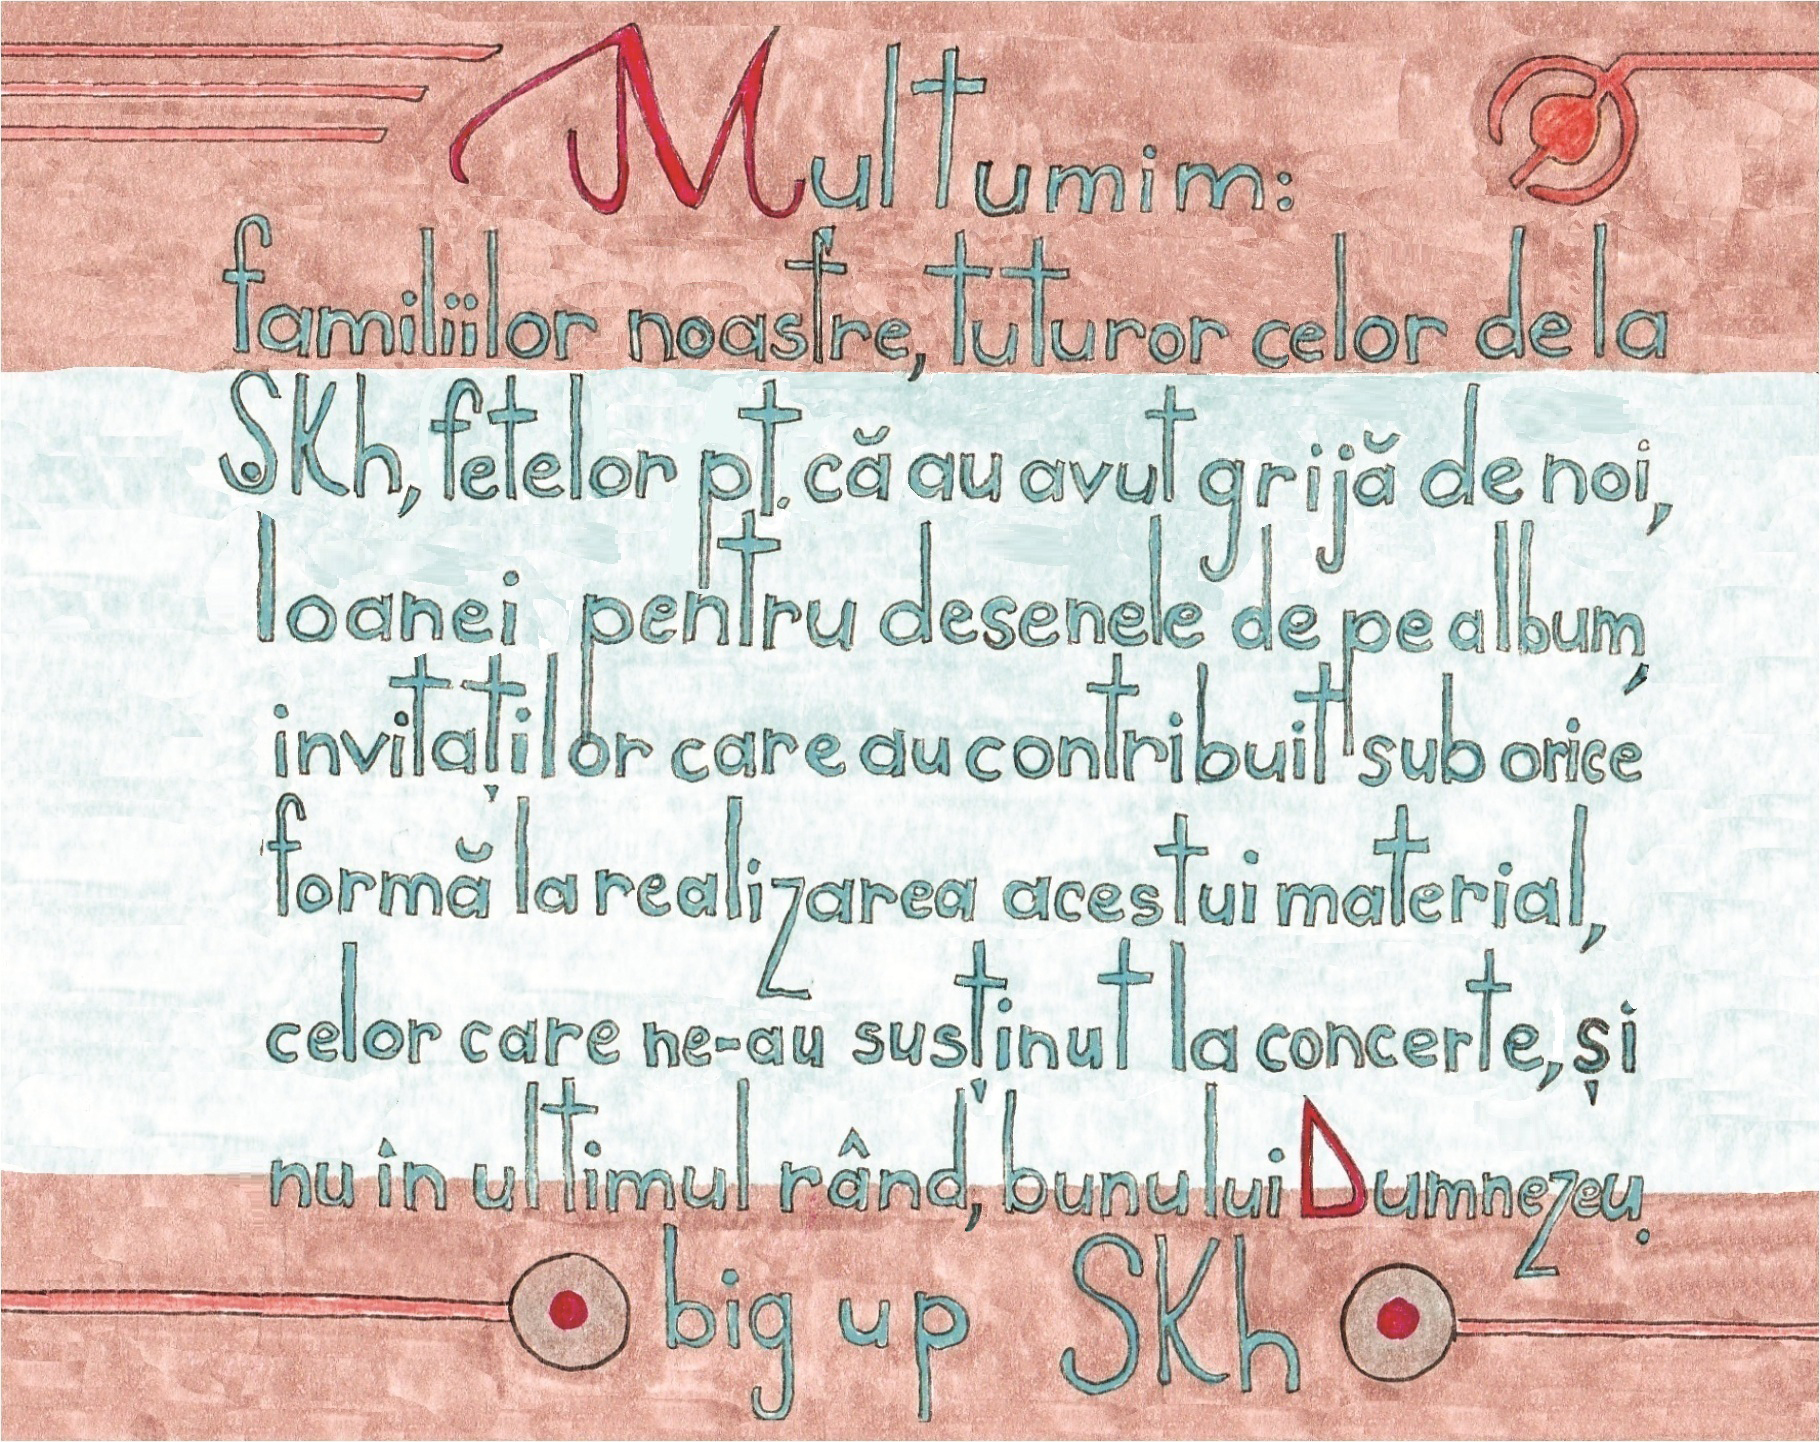 Multumim:
familiilor noastre, tuturor celor de la
SKh, fetelor pt. că au avut grijă de noi,
Ioanei pentru desenele de pe album,
invitaților care au contribuit sub orice
formă la realizarea acestui material,
celor care ne-au susținut la concerte, și
nu în ultimul rând, bunului Dumnezeu.
big up SKh